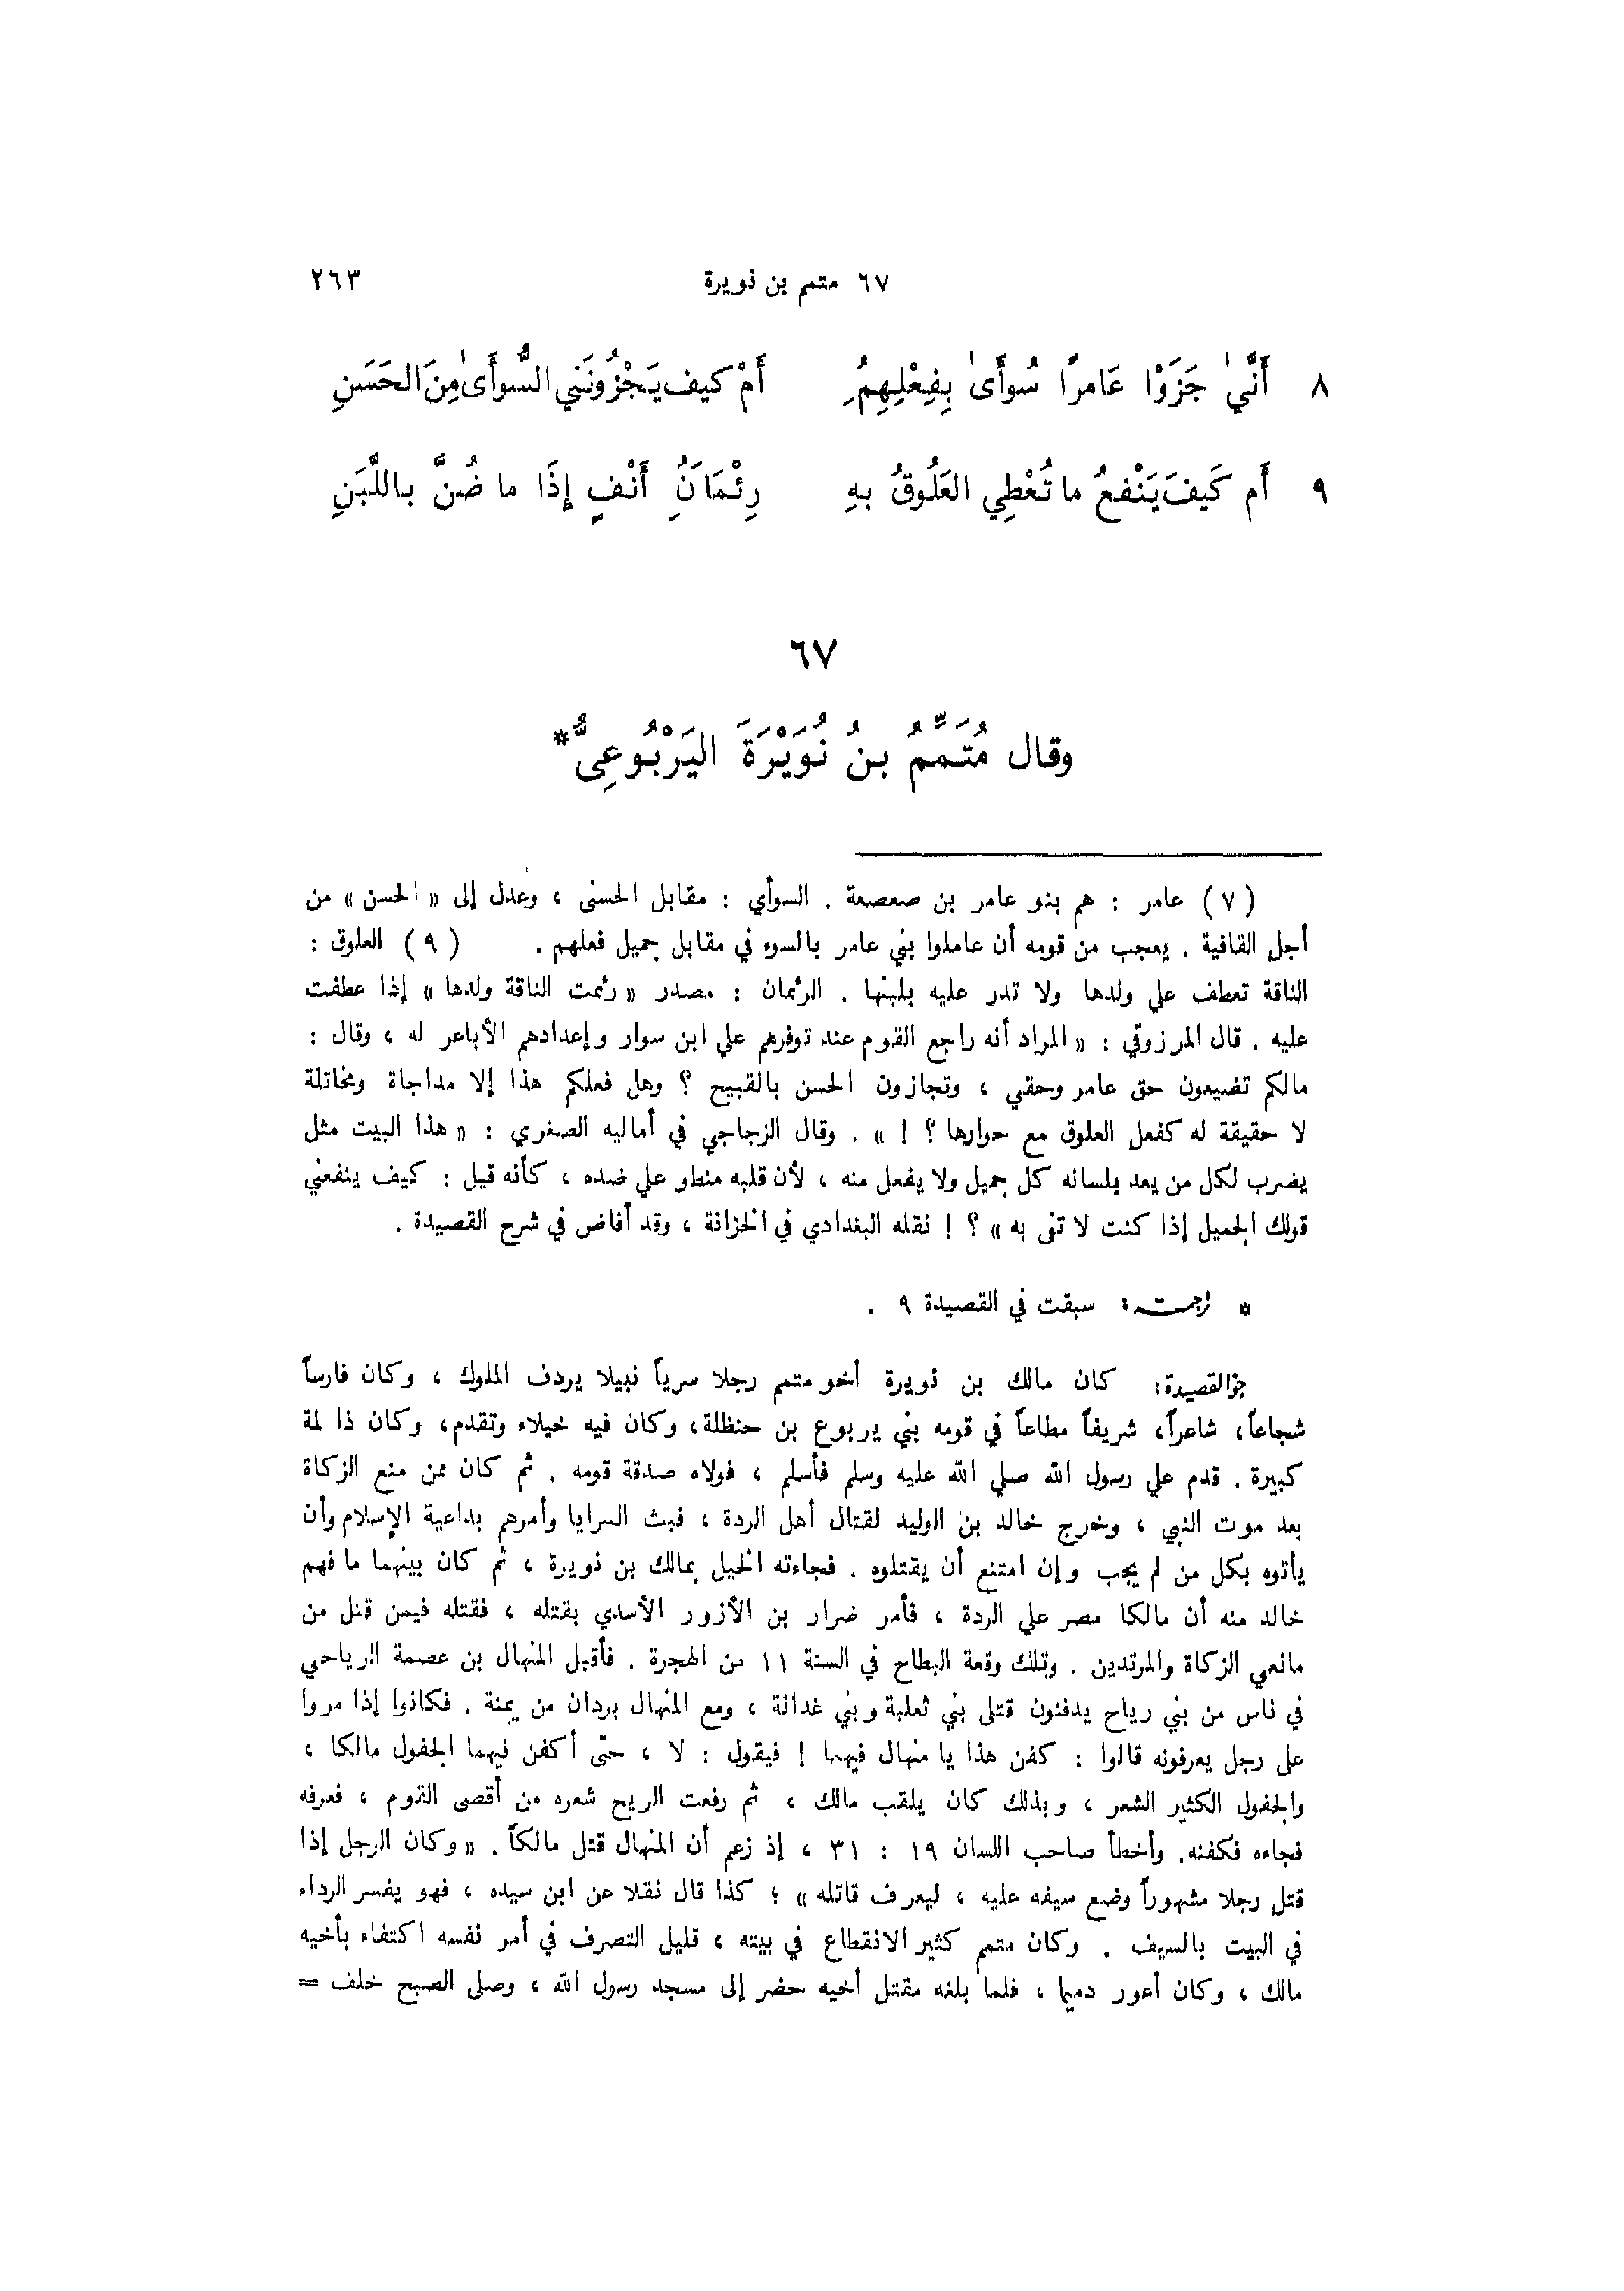 ٦٧ متمم بن نويرة ٢٦٣
٨ أَنَّىٰ جَزَوْا عَامرًا سُوأَىٰ بِفِعْلِهِمُ أَمْ كيف يَجْزُونَني السُّوأَىٰ مِنَ الحَسَنِ
٩ أَم كَيفَ يَنْفعُ ما تُعْطِي العَلُوقُ بهِ رِئْمَانَُِ أَنْفٍ إِذَا ما ضُنَّ باللَّبَنِ
٦٧
وقال مُتَمِّمُ بنُ نُوَيْرَةَ اليَرْبُوعِىُّ*
(٧) عامر : هم بنو عامر بن صعصعة . السوأي : مقابل الحسنى ، وعدل إلى « الحسن » من
أجل القافية . يعجب من قومه أن عاملوا بني عامر بالسوء في مقابل جميل فعلهم . (٩) العلوق :
الناقة تعطف علي ولدها ولا تدر عليه بلبنها . الرئمان : مصدر « رئمت الناقة ولدها » إذا عطفت
عليه . قال المرزوقي : « المراد أنه راجع القوم عند توفرهم علي ابن سوار وإعدادهم الأباعر له ، وقال :
مالكم تضيعون حق عامر وحقي ، وتجازون الحسن بالقبيح ؟ وهل فعلكم هذا إلا مداجاة ومخاتلة
لا حقيقة له كفعل العلوق مع حوارها ؟ ! » . وقال الزجاجي في أماليه الصغري : « هذا البيت مثل
يضرب لكل من يعد بلسانه كل جميل ولا يفعل منه ، لأن قلبه منطو علي ضده ، كأنه قيل : كيف ينفعني
قولك الجميل إذا كنت لا تفى به » ؟ ! نقله البغدادي في الخزانة ، وقد أفاض في شرح القصيدة .
* ترجمته : سبقت في القصيدة ٩ .
جو القصيدة : كان مالك بن نويرة أخو متمم رجلا سرياً نبيلا يردف الملوك ، وكان فارساً
شجاعاً، شاعراً، شريفاً مطاعاً في قومه بني يربوع بن حنظلة، وكان فيه خيلاء وتقدم، وكان ذا لمة
كبيرة . قدم علي رسول الله صلي الله عليه وسلم فأسلم ، فولاه صدقة قومه . ثم كان ممن منع الزكاة
بعد موت النبي ، وخرج خالد بن الوليد لقتال أهل الردة ، فبث السرايا وأمرهم بداعية الإسلام وأن
يأتوه بكل من لم يجب وإن امتنع أن يقتلوه . فجاءته الخيل بمالك بن نويرة ، ثم كان بينهما ما فهم
خالد منه أن مالكا مصر علي الردة ، فأمر ضرار بن الأزور الأسدي بقتله ، فقتله فيمن قتل من
مانعي الزكاة والمرتدين . وتلك وقعة البطاح في السنة ١١ من الهجرة . فأقبل المنهال بن عصمة الرياحي
في ناس من بني رياح يدفنون قتلى بني ثعلبة وبني غدانة ، ومع المنهال بردان من يمنة . فكانوا إذا مروا
على رجل يعرفونه قالوا : كفن هذا يا منهال فيهما ! فيقول : لا ، حتى أكفن فيهما الجفول مالكا ،
والجفول الكثير الشعر ، وبذلك كان يلقب مالك ، ثم رفعت الريح شعره من أقصى القوم ، فعرفه
فجاءه فكفنه. وأخطأ صاحب اللسان ١٩ : ٣١ ، إذ زعم أن المنهال قتل مالكاً . « وكان الرجل إذا
قتل رجلا مشهوراً وضع سيفه عليه ، ليعرف قاتله » ؛ كذا قال نقلا عن ابن سيده ، فهو يفسر الرداء
في البيت بالسيف . وكان متمم كثير الانقطاع في بيته ، قليل التصرف في أمر نفسه اكتفاء بأخيه
مالك ، وكان أعور دميما ، فلما بلغه مقتل أخيه حضر إلى مسجد رسول الله ، وصلى الصبح خلف =